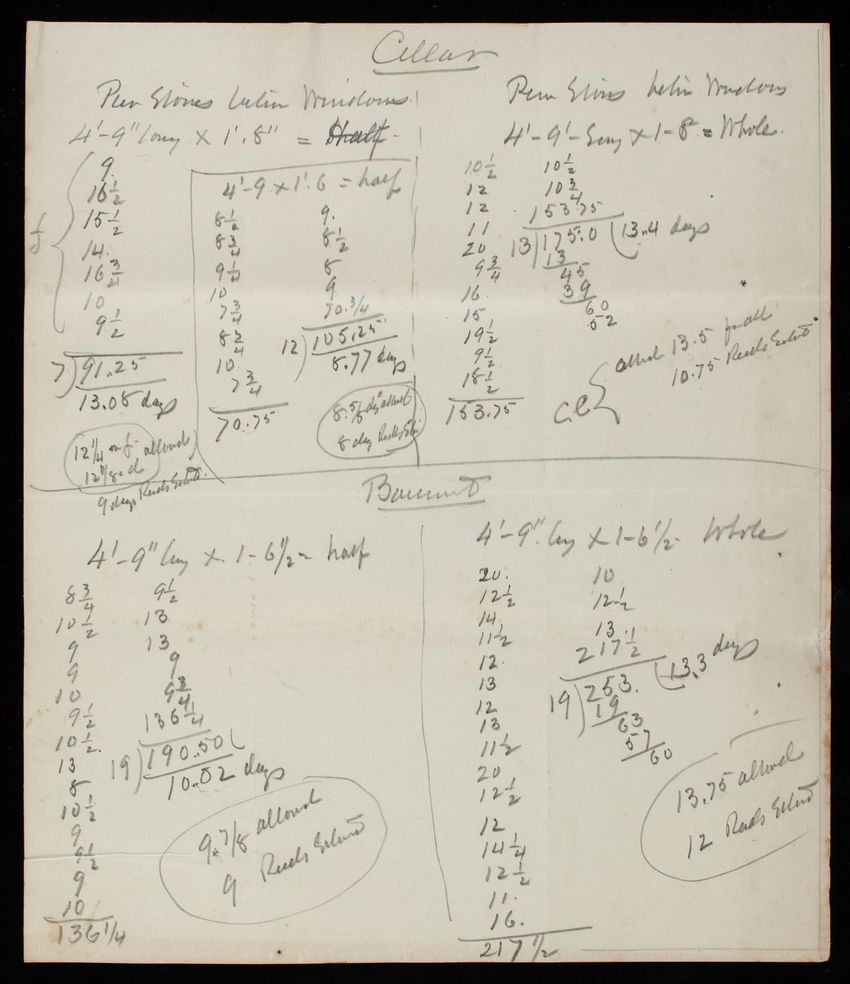 Cellar
Pier Stones betw Windows
4'-9" long × 1'.8" = Half
9.
16 1/2
15 1/2
14.
16 3/4
10
9 1/2
7)91.25
13.08 days
12 1/4 allowed
12 1/8
9 days Reeds Estimt
4'-9 × 1'.6 = half
8 1/2
8 3/4
9 1/4
10
7 3/4
8 3/4
10
7 3/4
70.75
9.
8 1/2
8
9
70.3/4
12)105.25
8.77 days
8.5/8 days allowed
8 day Reeds Estm
Pier Stones betw Windows
4'-9'-Long × 1-8" = Whole.
10 1/2
12
12
11
20
9 3/4
16.
15
19 1/2
9 1/2
18 1/2
153.75
10 1/2
10 3/4
153.75
13)175.0(13.4 days
13
45
39
60
52
C.C. { allowed 13.5 for all
10.75 Reeds Estimt
Basement
4'-9" long × 1-6 1/2 = half
8 3/4
10 1/2
9
9
10
9 1/2
10 1/2
13
8
10 1/2
9
9 1/2
9
10
136 1/4
9 1/2
13
13
9
9 3/4
136 1/4
19)190.50(
10.02 days
9.7/8 allowed
9 Reeds Estimt
4'-9". long × 1-6 1/2- Whole
20.
12 1/2
14.
11 1/2
12.
13
12
13
11 1/2
20
12 1/2
12
14 1/4
12 1/2
11.
16.
217 1/2
10
12 1/2
13.
217 1/2
19)253.(13.3 days
19
63
57
60
13.75 allowed
12 Reeds Estimt